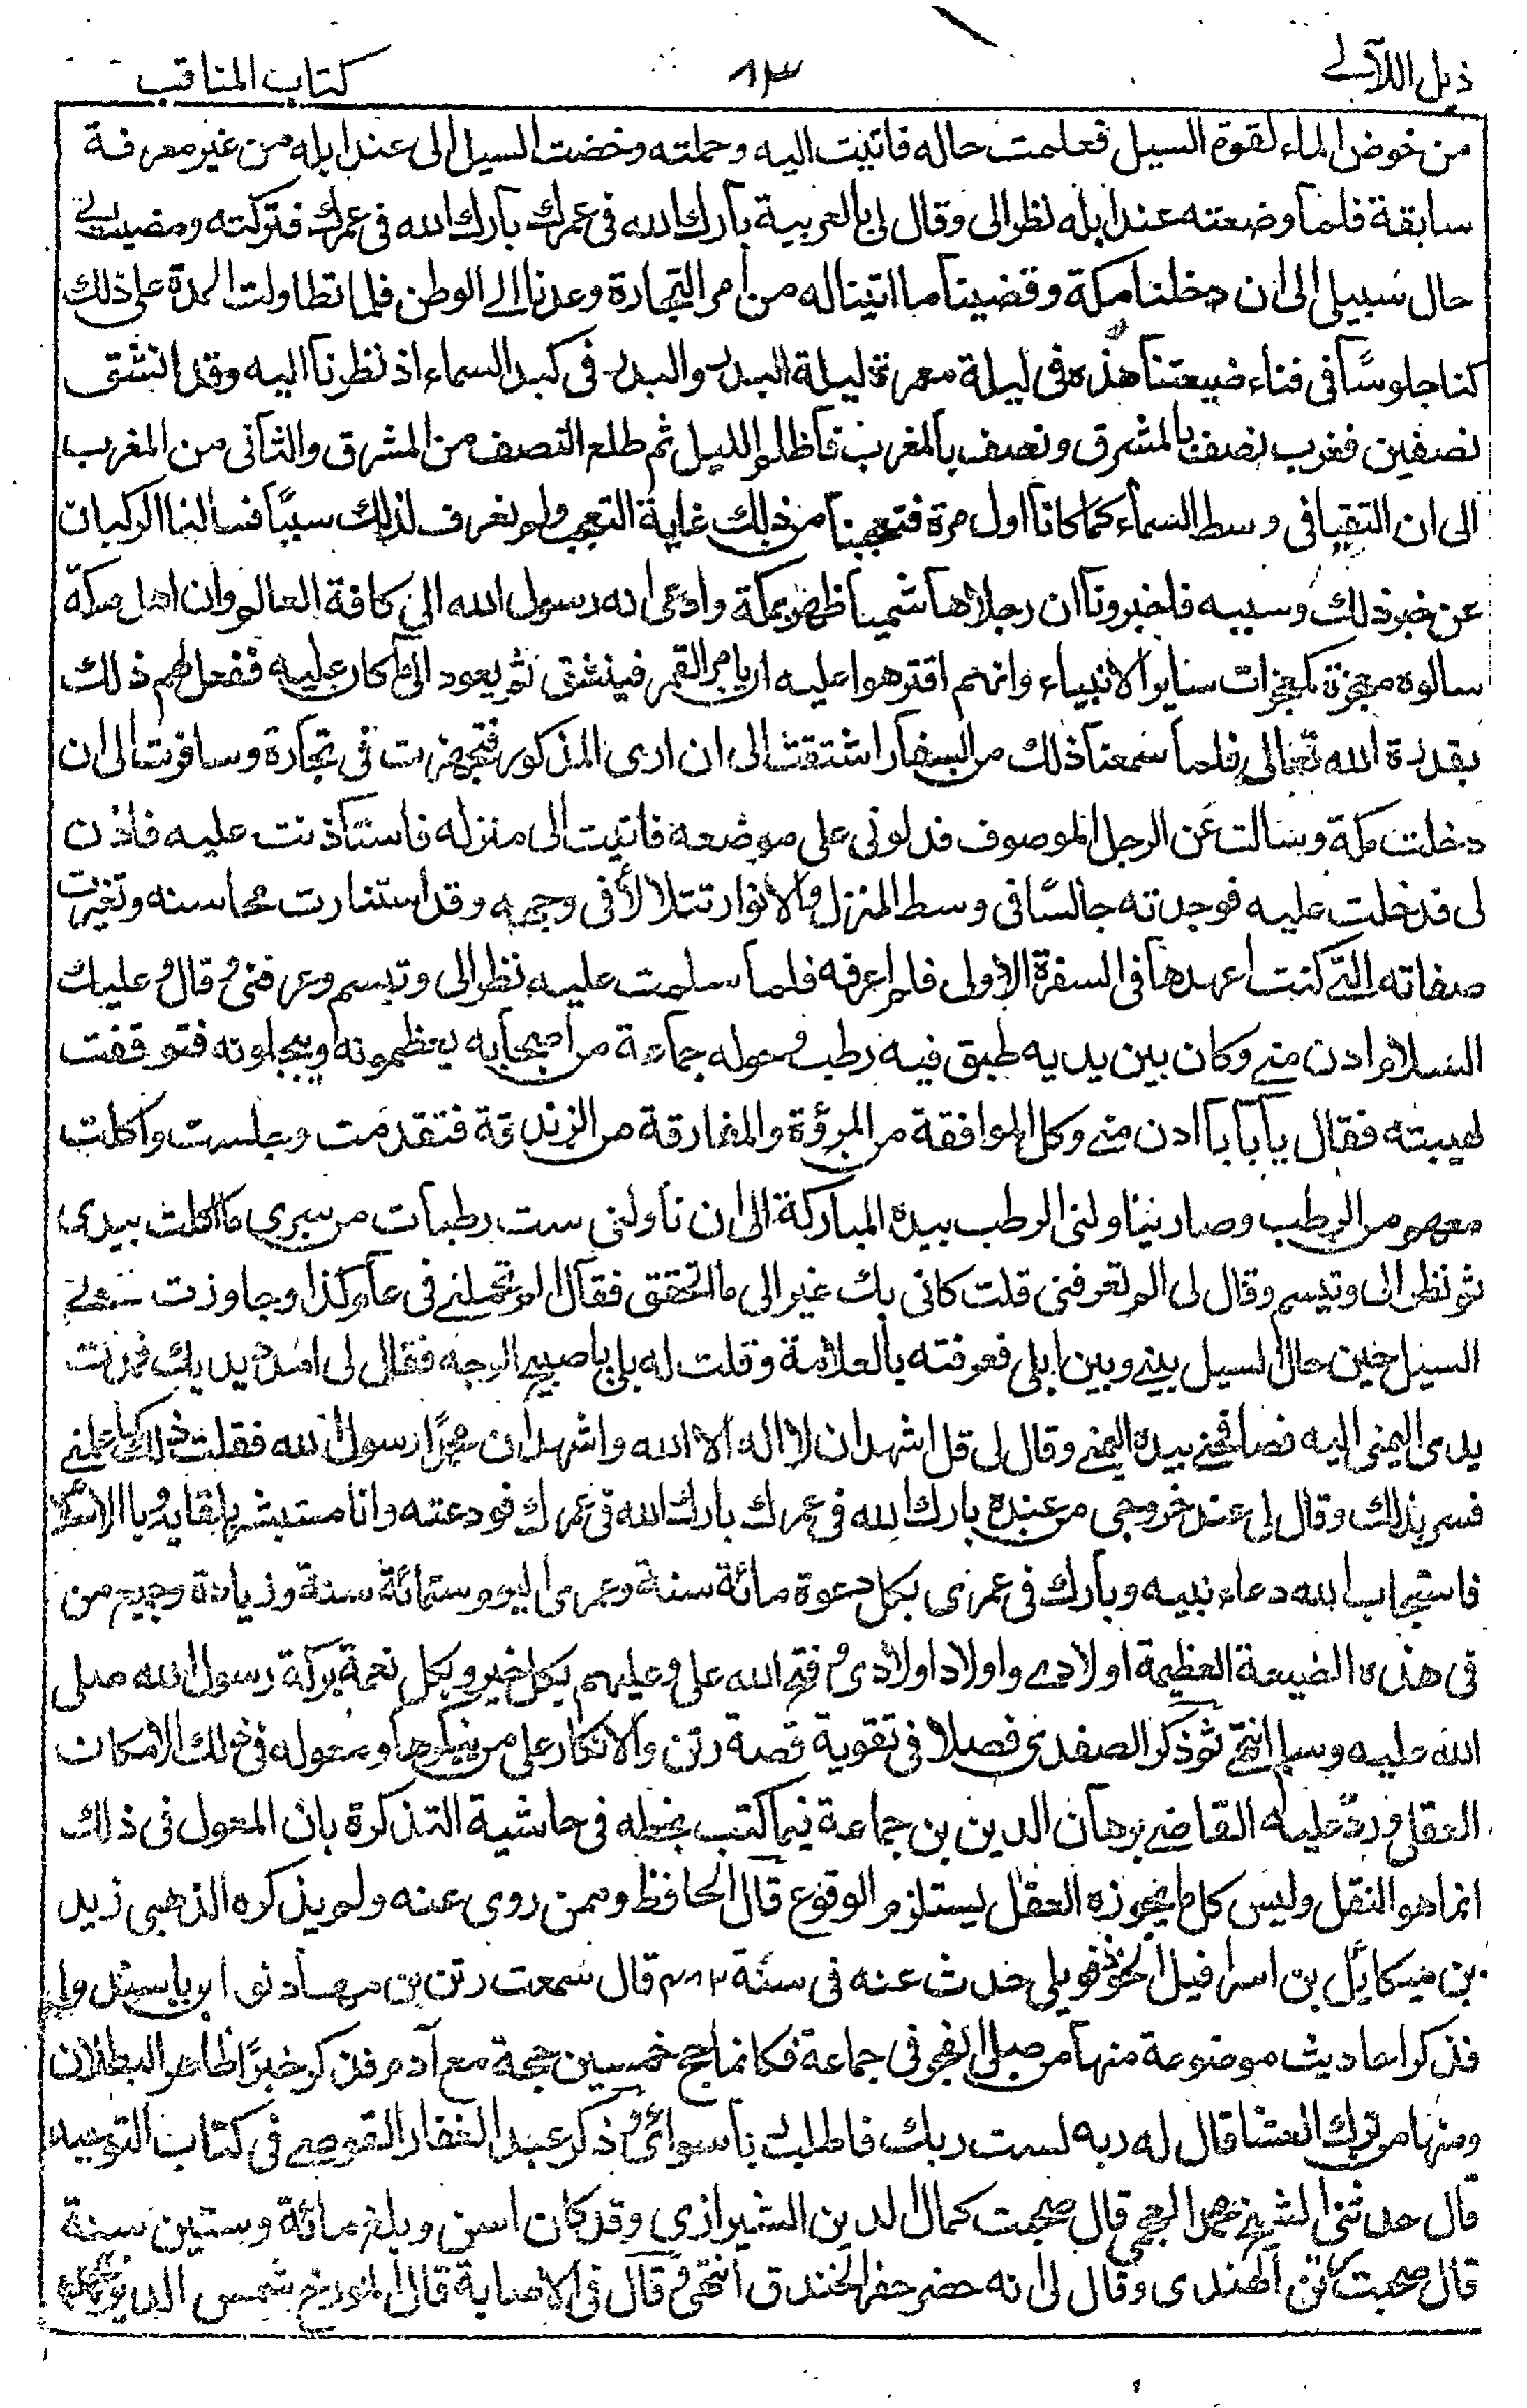 ذيل اللآلي
٨٣
كتاب المناقب
من خوض الماء لقوة السيل فعلمت حاله فاتيت اليه وحملته وخضت السيل الى عند ابله من غير معرفة
سابقة فلما وضعته عند ابله نظر الى وقال لى بالعربية بارك الله فى عمرك بارك الله فى عمرك فتركته ومضيت لى
حال سبيلى الى ان دخلنا مكة وقضينا ما اتينا له من امر التجارة وعدنا الى الوطن فلما تطاولت المدة على ذلك
كنا جلوسًا فى فناء ضيعتنا هذه فى ليلة مقمرة ليلة البدر والبدر فى كبد السماء اذ نظرنا اليه وقد انشق
نصفين فغرب نصف بالمشرق ونصف بالمغرب فاظلم الليل ثم طلع النصف من المشرق والثانى من المغرب
الى ان التقيا فى وسط السماء كما كانا اول مرة فتعجبنا من ذلك غاية التعجب ولم نعرف لذلك سببًا فسالنا الركبان
عن خبر ذلك وسببه فاخبرونا ان رجلا هاشميا ظهر بمكة وادعى انه رسول الله الى كافة العالم وان اهل مكة
سالوه معجزة كمعجزات سائر الانبياء وانهم اقترهوا عليه ان يامر القمر فينشق ثم يعود الى ما كان عليه ففعل لهم ذلك
بقدرة الله تعالى فلما سمعنا ذلك من السفار اشتقت الى ان ارى المذكور فتجهزت فى تجارة وسافرت الى ان
دخلت مكة وسالت عن الرجل الموصوف فدلونى على موضعه فاتيت الى منزله فاستأذنت عليه فاذن
لى فدخلت عليه فوجدته جالسًا فى وسط المنزل والانوار تتلالأ فى وجهه وقد استنارت محاسنه وتغيرت
صفاته التى كنت اعهدها فى السفرة الاولى فلم اعرفه فلما سلمت عليه نظر الى وتبسم وعرفنى وقال وعليك
السلام ادن منى وكان بين يديه طبق فيه رطب وحوله جماعة من اصحابه يعظمونه ويبجلونه فتوقفت
لهيبته فقال يا بابا ادن منى وكل الموافقة من المروؤة والمفارقة من الزندقة فتقدمت وجلست واكلت
معهم من الرطب وصار يناولنى الرطب بيده المباركة الى ان ناولنى ست رطبات من سوى ما اكلت بيدى
ثم نظر الى وتبسم وقال لى الم تعرفنى قلت كانى بك غير انى ما اتحقق فقال الم تحملنى فى عام كذا وجاوزت بى
السيل حين حال السيل بينى وبين ابلى فعرفته بالعلامة وقلت له بلى يا صبيح الوجه فقال لى امدد يديك فمددت
يدى اليمنى اليه فصافحنى بيده اليمنى وقال لى قل اشهد ان لا اله الا الله واشهد ان محمدًا رسول الله فقلت ذلك كما علمنى
فسر بذلك وقال لى عند خروجى من عنده بارك الله فى عمرك بارك الله فى عمرك فودعته وانا مستبشر بلقايه وبالاسلا
فاستجاب الله دعاء نبيه وبارك فى عمرى بكل دعوة مائة سنة وعمرى اليوم ستمائة سنة وزيادة وجميع من
فى هذه الضيعة العظيمة اولادى واولاد اولادى فتح الله على وعليهم بكل خير وبكل نعمة ببركة رسول الله صلى
الله عليه وسلم انتهى ثم ذكر الصفدى فصلا فى تقوية قصة رتن والانكار على من ينكرها ومعوله فى ذلك الامكان
العقلى ورد عليه القاضى برهان الدين بن جماعة فيما كتب بخطه فى حاشية التذكرة بان المعول فى ذلك
انما هو النقل وليس كل ما يجوزه العقل يستلزم الوقوع قال الحافظ وممن روى عنه ولم يذكره الذهبى زيد
بن ميكائيل بن اسرافيل حدث عنه فى سنة قال سمعت رتن بن
فذكر احاديث موضوعة منها من صلى الفجر فى جماعة فكانما حج خمسين حجة مع آدم فذكر خبرًا ظاهر البطلان
ومنها من ترك العشا قال له ربه لست ربك فاطلب ربا سوائى ذكر عبد الغفار القوصى فى كتاب التوحيد
قال حدثنى الشيخ محمد العجمى قال صحبت كمال الدين الشيرازى وقد كان اسن وبلغ مائة وستين سنة
قال صحبت رتن الهندى وقال لى انه حضر حفر الخندق انتهى وقال فى الاصابة قال المؤرخ شمس الدين